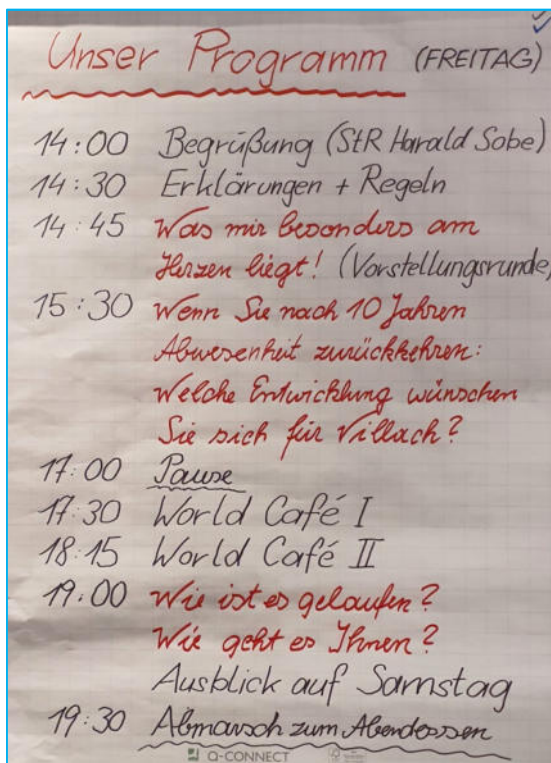 Unser Programm (FREITAG)
14:00 Begrüßung (StR Harald Sobe)
14:30 Erklärungen + Regeln
14:45 Was mir besonders am
Herzen liegt! (Vorstellungsrunde)
15:30 Wenn Sie nach 10 Jahren
Abwesenheit zurückkehren:
Welche Entwicklung wünschen
Sie sich für Villach?
17:00 Pause
17:30 World Café I
18:15 World Café II
19:00 Wie ist es gelaufen?
Wie geht es Ihnen?
Ausblick auf Samstag
19:30 Abmarsch zum Abendessen
Q-CONNECT